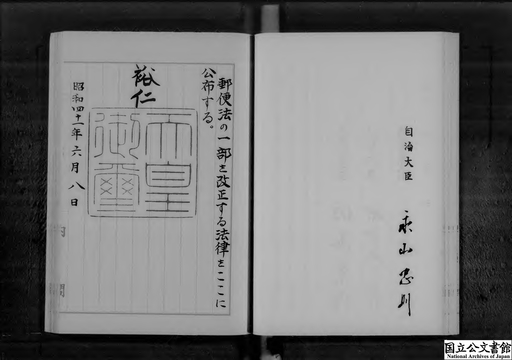 自治大臣
永山忠則
郵便法の一部を改正する法律をここに
公布する。
裕仁
天皇
御璽
昭和四十一年六月八日
国立公文書館
National Archives of Japan